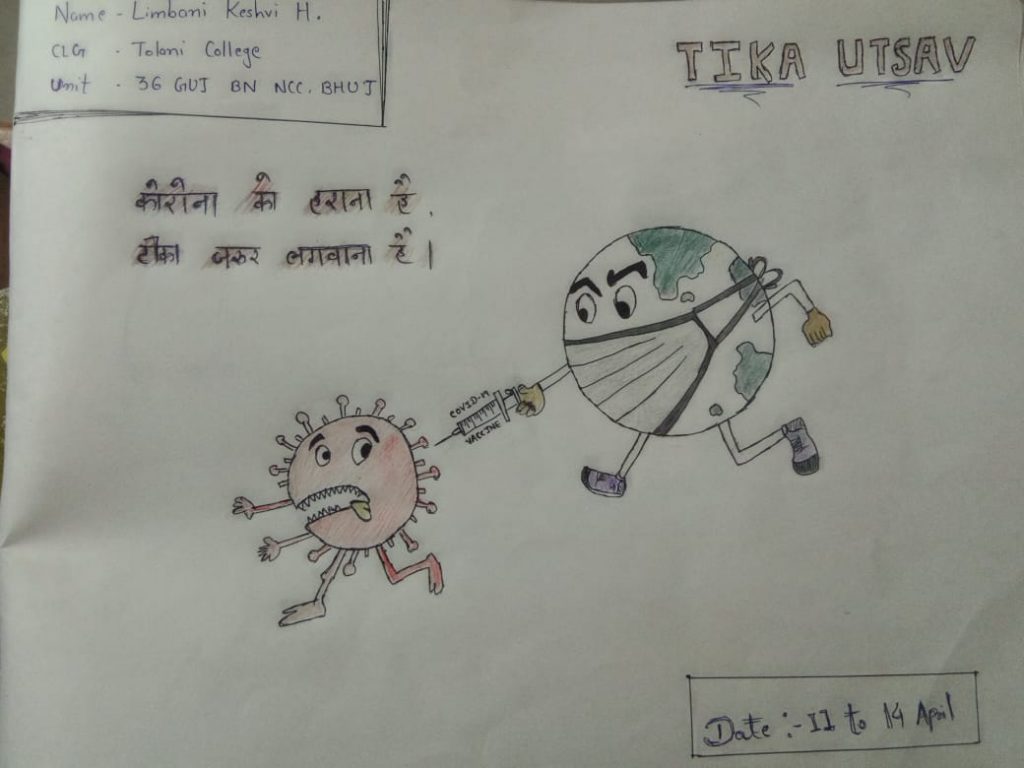 Name - Limbani Keshvi H.
CLG - Tolani College
Unit - 36 GUJ BN NCC. BHUJ
TIKA UTSAV
कोरोना को हराना है.
टीका जरुर लगवाना है।
COVID-19
VACCINE
Date :- 11 to 14 April